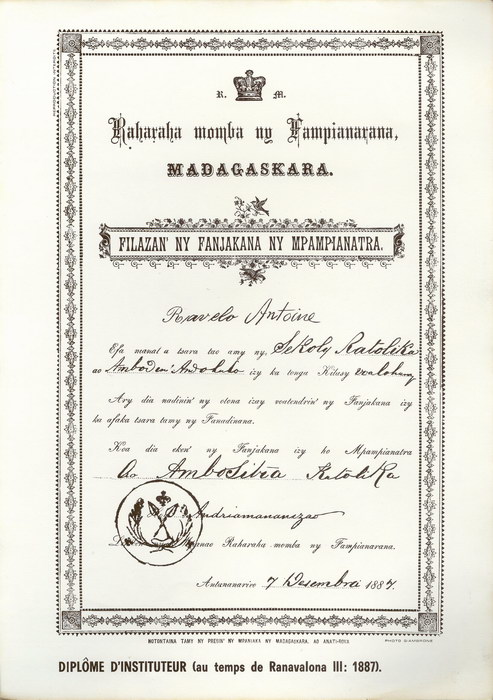 R. M.
Raharaha momba ny Fampianarana,
MADAGASKARA.
FILAZAN' NY FANJAKANA NY MPAMPIANATRA.
Ravelo Antoine
Efa mianatra tsara tao amy ny, Sekoly Katolika
ao izy ka tonga Kilasy
Ary dia nadinin' ny olona izay voatendrin' ny Fanjakana izy
ka afaka tsara tamy ny Fanadinana.
Koa dia eken' ny Fanjakana izy ho Mpampianatra
Ao Ambositra Katolika
Raharaha momba ny Fampianarana.
Antananarivo 7 Desembra 1887.
NOTONTAINA TAMY NY PRESIN' NY MPANJAKA NY MADAGASKARA, AO
DIPLÔME D'INSTITUTEUR (au temps de Ranavalona III: 1887).